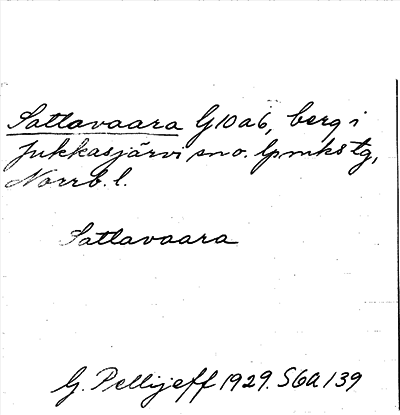 Sattavaara G10a6, berg i
Jukkasjärvi sn o. lpmkstg,
Norrb. l.
Sattavaara
G. Pellijeff 1929. S6a 139